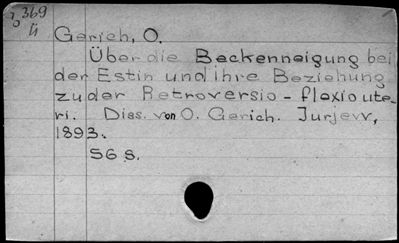 369
ü
Gerich, O.
Über die Beckenneigung bei
der Estin und ihre Beziehung
zu der Retroversio - flexio ute-
ri. Diss. von O. Gerich. Jurjew,
1893.
56 S.